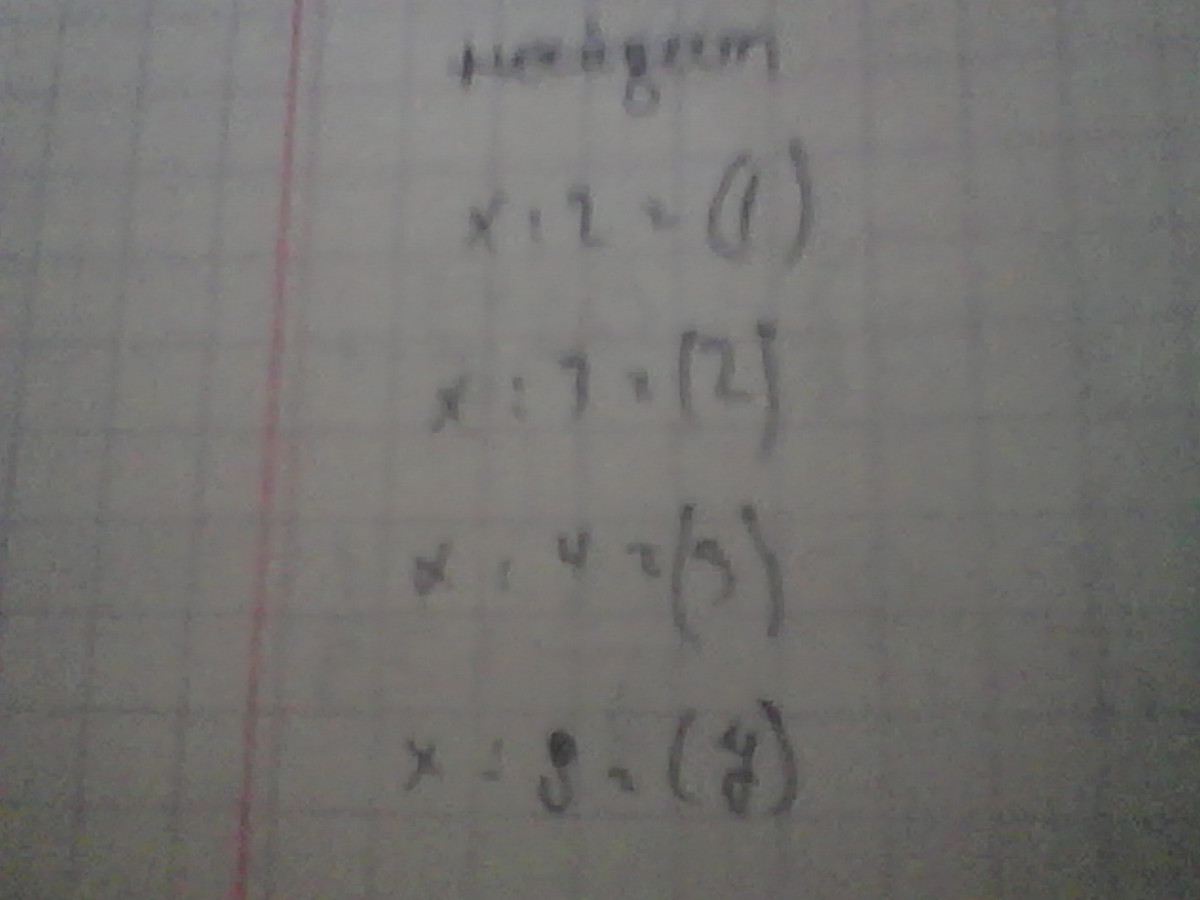 x : 2 = (1)
x : 7 = (2)
x : 4 = (3)
x : 8 = (4)